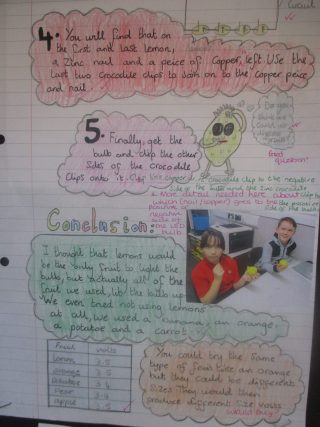 Circuit
4. You will find that on
the first and last lemon,
a Zinc nail and a peice of Copper left. Use the
last two crocodile clips to join on to the copper peice
and nail.
Do you
think we
could use
5. Finally, get the
bulb and clip the other
sides of the crocodile
clips onto it. Clip the copper
Good
question!
crocodile clip to the negative
side of the bulb and the zinc crocodile
* More detail needed here about clip to
which (nail/copper) goes to the the positive
positive or side of the bulb
negative
side of
the LED
bulb.
Conclusion:
I thought that lemons would
be the only fruit to light the
bulb, but actually all of the
fruit we used, lit the bulb up.
We even tried not using lemons
at all, we used a banana, an orange,
a potatoe and a carrot.
Fruit volts
lemon 3.5
orange 3.5
potatoe 3.4
Pear
apple
You could try the same
type of fruit like an orange
but they could be different
sizes. They would then
produce different size volts
would they?